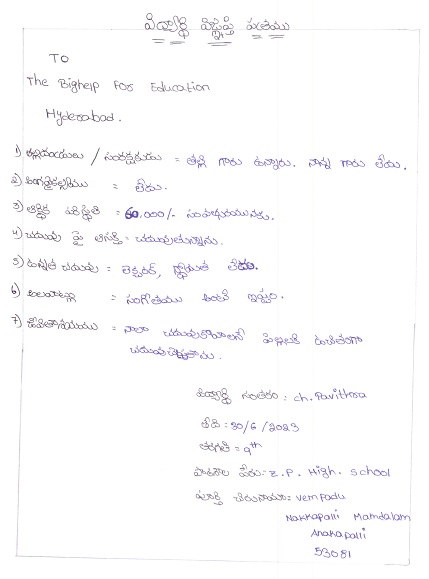 విద్యార్థి విజ్ఞప్తి పత్రము
TO
The Bighelp For Education
Hyderabad.
1) తల్లిదండ్రులు / సంరక్షకుడు = తల్లి గారు ఉన్నారు. నాన్న గారు లేరు.
2) అంగవైకల్యము = లేదు.
3) ఆర్థిక పరిస్థితి = 60,000/- సంవత్సరమునకు.
4) చదువు పై ఆసక్తి = చదువుతున్నాను.
5) ఉన్నత చదువు = లెక్చరర్, స్తోమత లేదు.
6) అలవాట్లు = సంగీతము అంటే ఇష్టం.
7) జీవితాశయము = నాలా చదువుకోవాలనే పిల్లలకి ఉచితంగా
చదువుచెప్తాను.
విద్యార్థి సంతకం : ch. Pavithra
తేది : 30/6/2023
తరగతి = 9th
పాఠశాల పేరు:- Z.P. High. School
పూర్తి చిరునామా: Vempadu
Nakkapalli Mamdalam
Anakapalli
53081